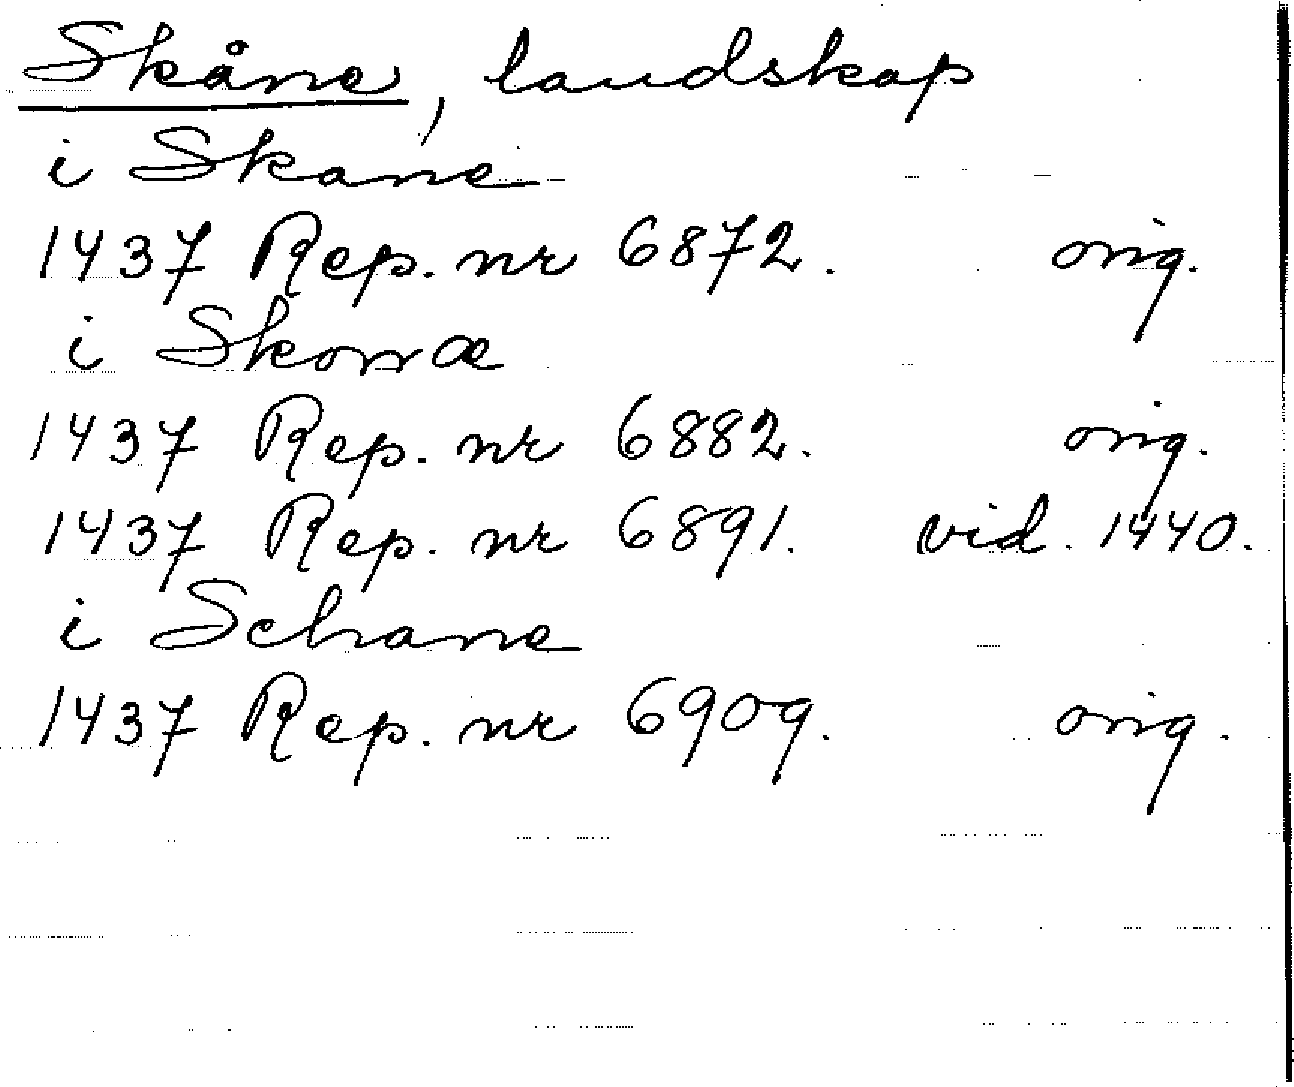 Skåne, landskap
i Skane
1437 Rep. nr 6872. orig.
i Skonæ
1437 Rep. nr 6882. orig.
1437 Rep. nr 6891. vid. 1440.
i Schane
1437 Rep. nr 6909. orig.